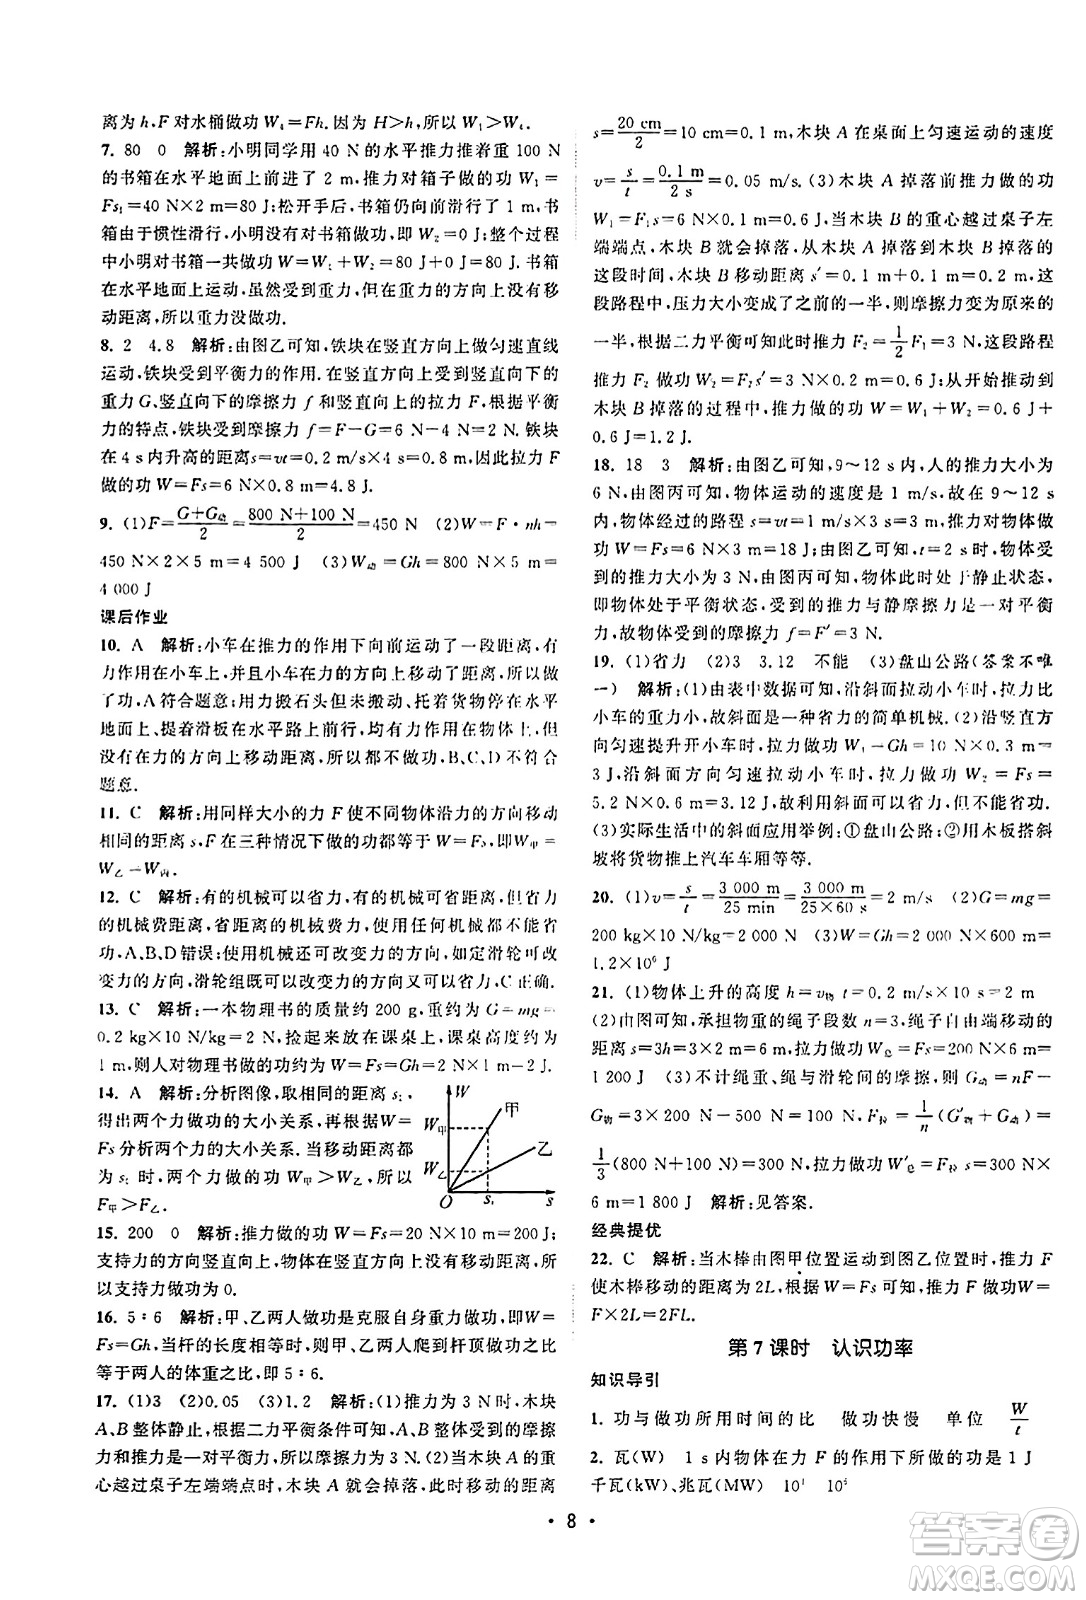 离为 h,F 对水桶做功 W₄=Fh. 因为 H>h,所以 W₁>W₄.
7. 80 0 解析:小明同学用 40 N 的水平推力推着重 100 N
的书箱在水平地面上前进了 2 m,推力对箱子做的功 W₁=
Fs₁=40 N×2 m=80 J;松开手后,书箱仍向前滑行了 1 m,书
箱由于惯性滑行,小明对书箱不做功,即 W₂=0 J;整个过程
中小明对书箱一共做功 W=W₁+W₂=80 J+0 J=80 J. 书箱
在水平地面上运动,虽然受到重力,但没有在重力的方向上移
动距离,所以重力没做功.
8. 2 4.8 解析:由图乙可知,铁块在竖直方向上做匀速直线
运动,铁块受到平衡力的作用. 在竖直方向上受到竖直向下的
重力 G、竖直向下的摩擦力 f 和竖直向上的拉力 F,根据平衡
力的特点,铁块受到摩擦力 f=F−G=6 N−4 N=2 N. 铁块
在 4 s 内升高的距离s=vt=0.2 m/s×4 s=0.8 m,因此拉力 F
做的功 W=Fs=6 N×0.8 m=4.8 J.
9. (1)F=(G+G动)/2=(800 N+100 N)/2=450 N (2)W=F·nh=
450 N×2×5 m=4 500 J (3)W动=Gh=800 N×5 m=
4 000 J
课后作业
10. A 解析:小车在推力的作用下向前运动了一段距离,有
力作用在小车上,并且小车在力的方向上移动了距离,所以做
了功,A 符合题意;用力搬石头但未搬动、托着货物停在水平
地面上、提着滑板在水平路上前行,都有力作用在物体上,但
都没有在力的方向上移动距离,所以都没有做功,B、C、D 不符合
题意.
11. C 解析:用同样大小的力 F 使不同物体沿力的方向移动
相同的距离 s,F 在三种情况下做的功都等于 W=Fs,即W甲=
W乙=W丙.
12. C 解析:有的机械可以省力,有的机械可以省距离,省力
的机械费距离,省距离的机械费力,但使用任何机械都不能省
功,A、B、D 错误;使用机械还可改变力的方向,如定滑轮可改
变力的方向,滑轮组既可以改变力的方向又可以省力,C 正确.
13. C 解析:一本物理书的质量约 200 g,重约为 G=mg=
0.2 kg×10 N/kg=2 N,捡起来放到课桌上,课桌高度约为
1 m,则人对物理书做的功约为 W=Fs=Gh=2 N×1 m=2 J.
14. A 解析:分析图像,取相同的距离 s₁,
得出两个力做功的大小关系,再根据 W=
Fs 分析两个力的大小关系. 当移动距离都
为 s₁ 时,两个力做功 W甲>W乙,所以
F甲>F乙.
W
甲
W甲
乙
W乙
O s₁ s
15. 200 0 解析:推力做的功 W=Fs=20 N×10 m=200 J;
支持力的方向竖直向上,物体在竖直方向上没有移动距离,所
以支持力做功为 0.
16. 5∶6 解析:甲、乙两人做功是克服自身重力做功,即W=
Fs=Gh,当杆的长度相等时,则甲、乙两人爬到杆顶做功之比
等于两人的体重之比,即 5∶6.
17. (1)3 (2)0.05 (3)1.2 解析:(1)推力为 3 N时,木块
A、B 整体静止,根据二力平衡条件可知,此时木块受到的摩擦
力和推力是一对平衡力,所以摩擦力为 3 N. (2)当木块 A 的重
心越过桌子左端端点时,木块 A 就会掉落,木块 A 移动的距离
s=20 cm/2=10 cm=0.1 m,木块 A 在桌面上匀速运动的速度
v=s/t=0.1 m/2 s=0.05 m/s. (3)木块 A 掉落前推力做的功
W₁=F₁s=6 N×0.1 m=0.6 J,当木块 B 的重心越过桌子左
端端点,木块 B 就会掉落,从木块 A 掉落到木块 B 掉落的
这段时间,木块 B 移动距离 s′=0.1 m+0.1 m=0.2 m,在这
段路程中,压力大小变成了之前的一半,则摩擦力变为原来的
一半,根据二力平衡可知此时推力 F₂=1/2F₁=3 N,这段路程
推力 F₂ 做功 W₂=F₂s′=3 N×0.2 m=0.6 J,从开始推动到
木块 B 掉落的过程中,推力做的功 W=W₁+W₂=0.6 J+
0.6 J=1.2 J.
18. 18 3 解析:由图乙可知,9~12 s内,人的推力大小为
6 N,由图丙可知,物体运动的速度是 1 m/s,故这段在 9~12 s
内,物体经过的路程 s=vt=1 m/s×3 s=3 m,推力对物体做
功 W=Fs=6 N×3 m=18 J;由图乙可知,t=2 s时,物体受到
的推力大小为 3 N,由图丙可知,物体此时处于静止状态,
即物体处于平衡状态,受到的推力与静摩擦力是一对平衡
力,故物体受到的摩擦力 f=F′=3 N.
19. (1)省力 (2)3 3.12 不能 (3)盘山公路(答案不唯
一) 解析:(1)由表中数据可知,沿斜面拉动小车时,拉力比
小车的重力小,故斜面是一种省力的简单机械. (2)沿竖直方
向匀速提升开小车时,拉力做功 W₁=Gh=10 N×0.3 m=
3 J,沿斜面方向匀速拉动小车时,拉力做功 W₂=Fs=
5.2 N×0.6 m=3.12 J,故利用斜面可以省力,但不能省功.
(3)实际生活中的斜面应用举例:①盘山公路;②用木板搭斜
坡将货物推上汽车车厢等等.
20. (1)v=s/t=3 000 m/25 min=3 000 m/(25×60 s)=2 m/s (2)G=mg=
200 kg×10 N/kg=2 000 N (3)W=Gh=2 000 N×600 m=
1.2×10⁶ J
21. (1)物体上升的高度 h=v物 t=0.2 m/s×10 s=2 m
(2)由图可知,承担物重的绳子段数 n=3,绳子自由端移动的
距离 s=3h=3×2 m=6 m,拉力做功 W总=Fs=200 N×
6 m=1 200 J (3)不计绳重、绳与滑轮间的摩擦,则 G动=nF−
G物=3×200 N−500 N=100 N,F拉=1/n(G′物+G动)=
1/3(800 N+100 N)=300 N,拉力做功 W′总=F拉 s=300 N×
6 m=1 800 J 解析:见答案.
经典提优
22. C 解析:当木棒由图甲位置运动到图乙位置时,推力 F
使木棒移动的距离为 2L,根据 W=Fs 可知,推力 F 做功W=
F×2L=2FL.
第 7 课时 认识功率
知识导引
1. 功与做功所用时间的比 做功快慢 单位 W/t
2. 瓦(W) 1 s内物体在力 F 的作用下所做的功为 1 J
千瓦(kW)、兆瓦(MW)
· 8 ·
答案卷
MXQE.COM